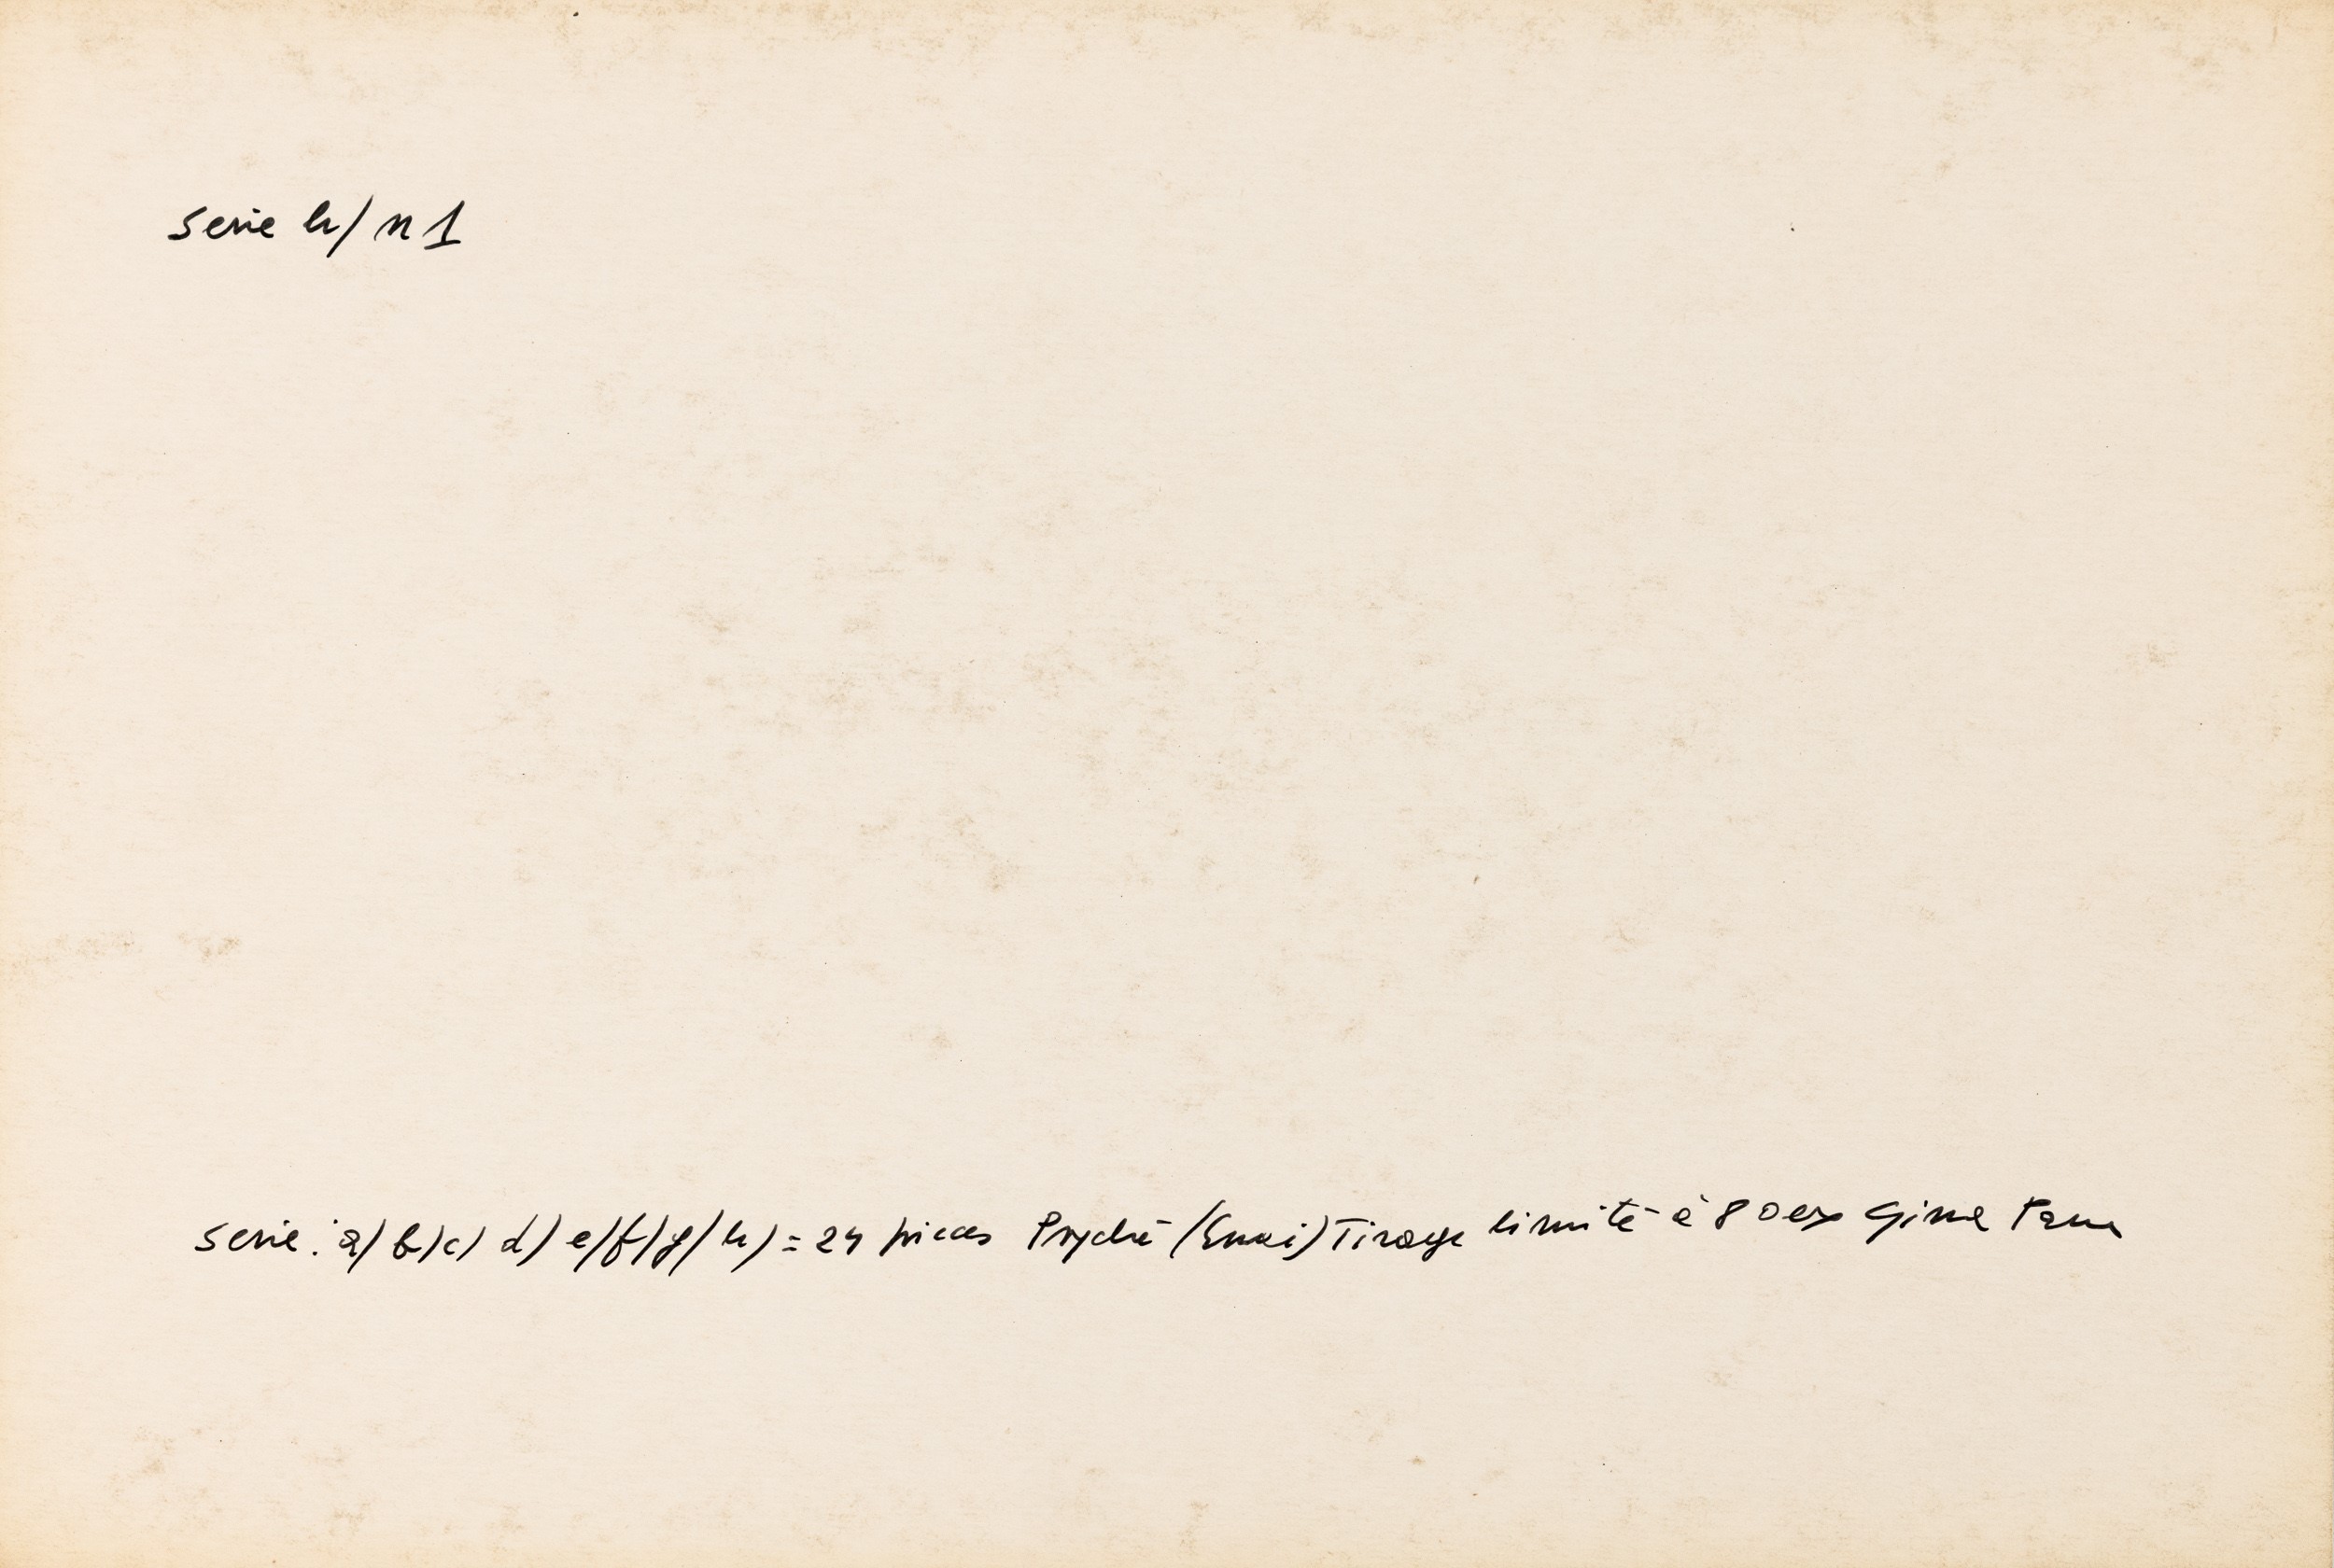 serie h/ n 1
serie : a) b) c) d) e) f) g) h) = 24 pieces Psyché (Essai) Tirage limité à 80 ex Gina Pane